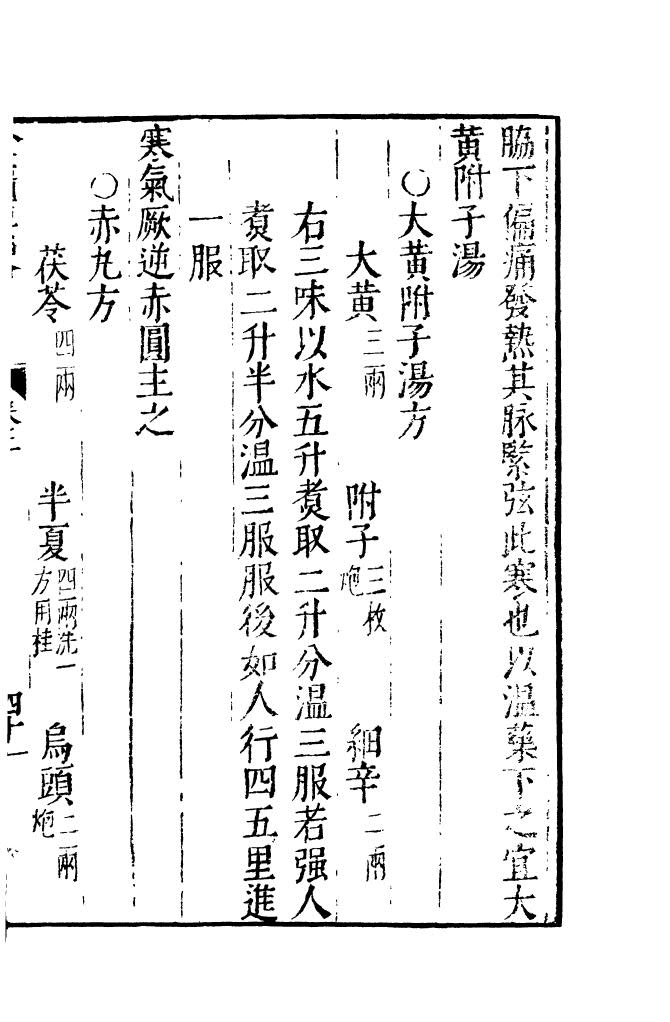 脇下偏痛發熱其脉緊弦此寒也以温藥下之宜大
黄附子湯
○大黄附子湯方
大黄三兩 附子三枚炮 細辛二兩
右三味以水五升煑取二升分温三服若强人
煑取二升半分温三服服後如人行四五里進
一服
寒氣厥逆赤圓主之
○赤丸方
茯苓四兩 半夏四兩洗一方用桂 烏頭二兩炮
卷三 四十一